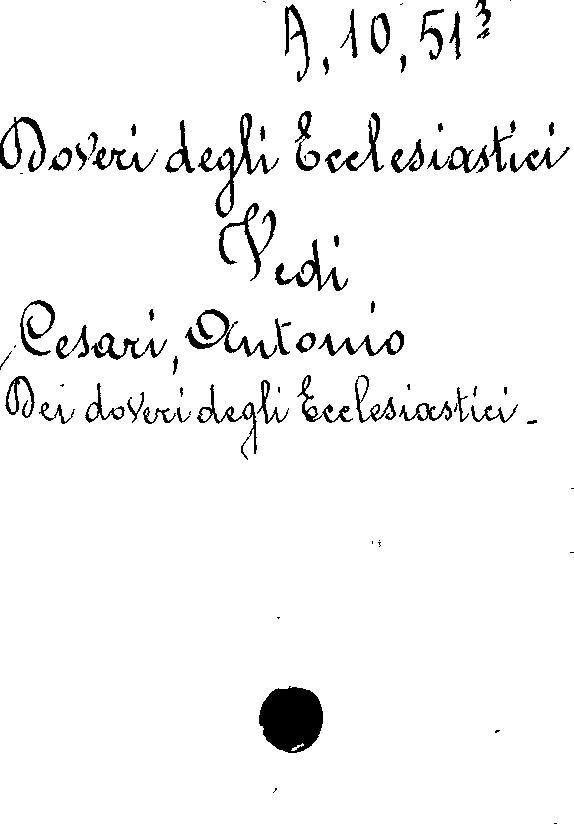 A, 10, 51³
Doveri degli Ecclesiastici
Vedi
Cesari, Antonio
Dei doveri degli Ecclesiastici -